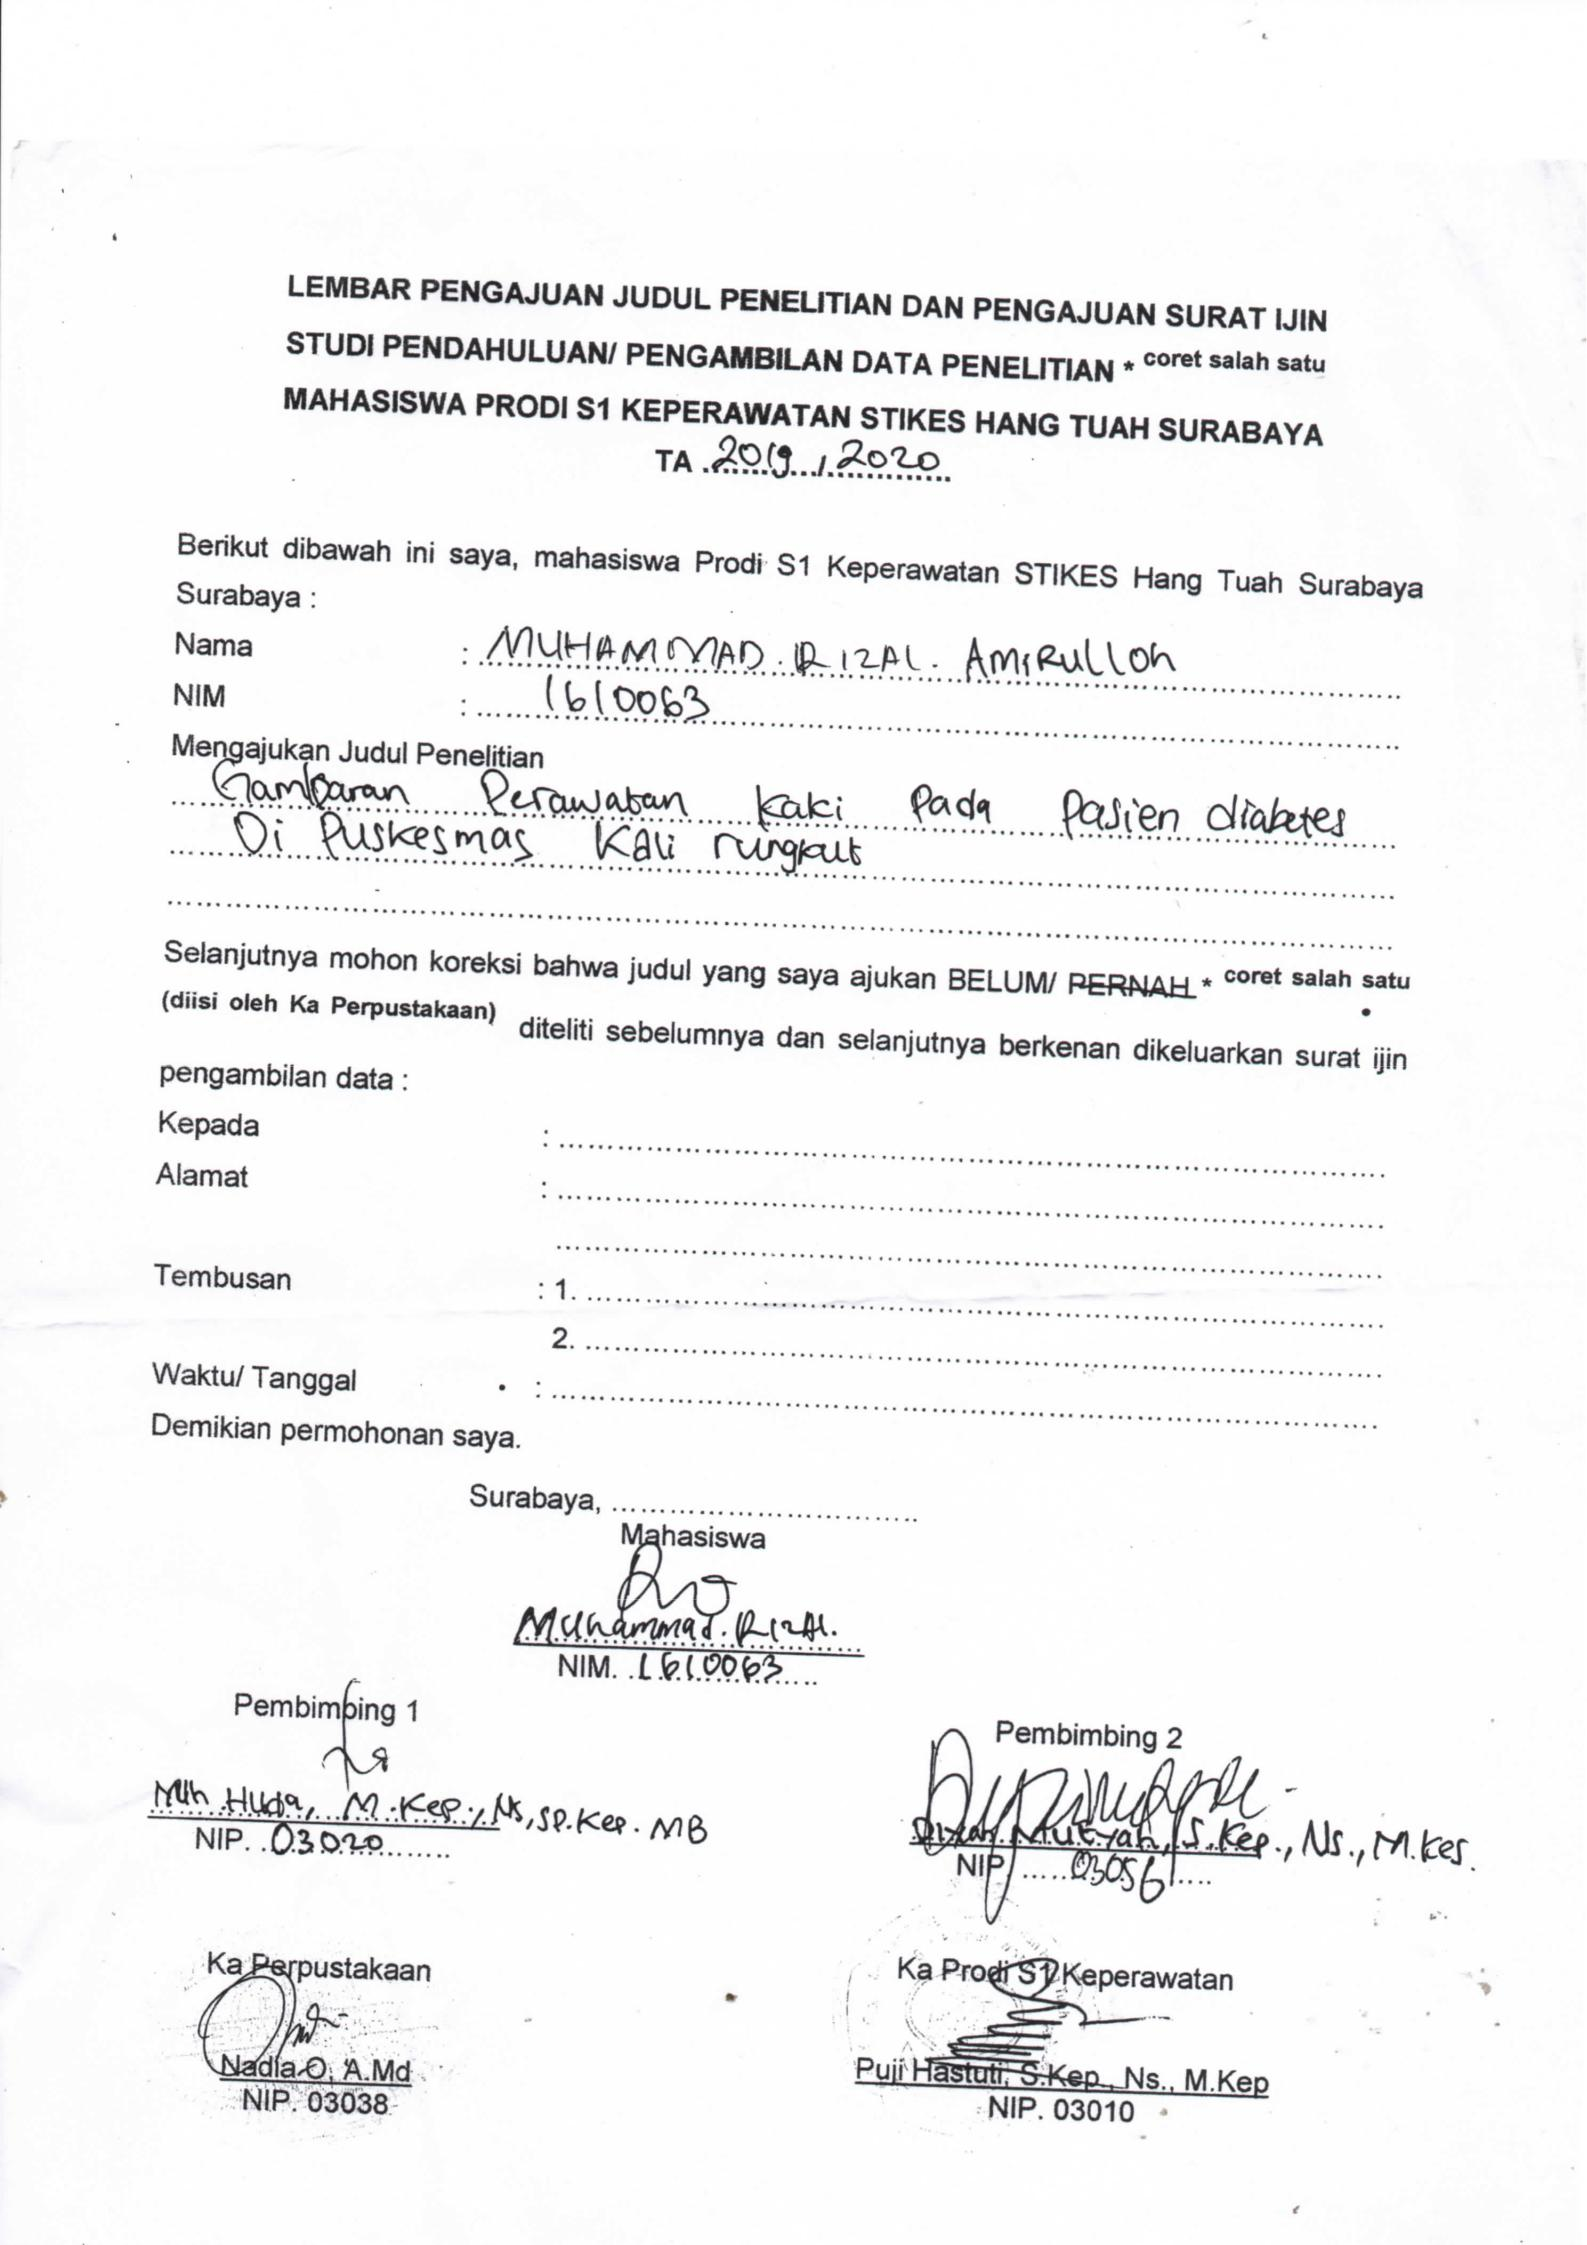 LEMBAR PENGAJUAN JUDUL PENELITIAN DAN PENGAJUAN SURAT IJIN
STUDI PENDAHULUAN/ PENGAMBILAN DATA PENELITIAN * coret salah satu
MAHASISWA PRODI S1 KEPERAWATAN STIKES HANG TUAH SURABAYA
TA 2019 / 2020
Berikut dibawah ini saya, mahasiswa Prodi S1 Keperawatan STIKES Hang Tuah Surabaya
Surabaya :
Nama : MUHAMMAD. RIZAL. AMIRULLOh
NIM : 1610063
Mengajukan Judul Penelitian
Gambaran Perawatan kaki pada pasien diabetes
Di Puskesmas Kali rungkut
Selanjutnya mohon koreksi bahwa judul yang saya ajukan BELUM/ PERNAH * coret salah satu
(diisi oleh Ka Perpustakaan) diteliti sebelumnya dan selanjutnya berkenan dikeluarkan surat ijin
pengambilan data :
Kepada :
Alamat :
Tembusan : 1.
2.
Waktu/ Tanggal :
Demikian permohonan saya.
Surabaya,
Mahasiswa
Muhammad. RIZAl.
NIM. 1610063
Pembimbing 1
Huda, M.Kep., Ns, Sp.Kep. MB
NIP. 03020
Pembimbing 2
S.Kep., Ns., M.Kes.
NIP 03056
Ka Perpustakaan
Nadia O, A.Md
NIP. 03038
Ka Prodi S1 Keperawatan
Puji Hastuti, S.Kep., Ns., M.Kep
NIP. 03010